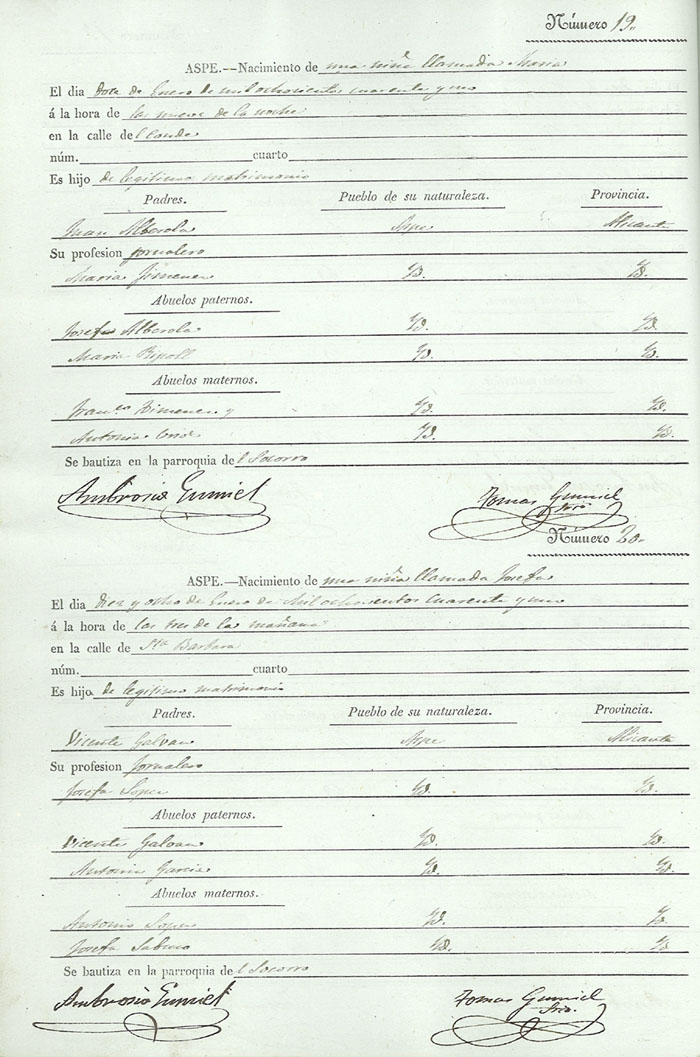 Número 19.
ASPE.--Nacimiento de una niña llamada Maria
El dia doce de Enero de mil ochocientos cuarenta y uno
á la hora de las nueve de la noche
en la calle del Conde
núm. cuarto
Es hijo de legitimo matrimonio
Padres. Pueblo de su naturaleza. Provincia.
Juan Alberola Aspe Alicante
Su profesion jornalero
Maria Jimenez Yd. Yd.
Abuelos paternos.
Josef Alberola Yd. Yd.
Maria Ripoll Yd. Yd.
Abuelos maternos.
Fran.co Ximenez y Yd. Yd.
Antonia Yd. Yd.
Se bautiza en la parroquia del Socorro
Ambrosio Gumiel Tomas Gumiel
Srio.
Número 20.
ASPE.—Nacimiento de una niña llamada Josefa
El dia diez y ocho de Enero de Mil ochocientos cuarenta y uno
á la hora de las tres de la mañana
en la calle de Sta Barbara
núm. cuarto
Es hijo de legitimo matrimonio
Padres. Pueblo de su naturaleza. Provincia.
Vicente Galvan Aspe Alicante
Su profesion Jornalero
Josefa Soper Yd. Yd.
Abuelos paternos.
Vicente Galvan Yd. Yd.
Antonia Garcia Yd. Yd.
Abuelos maternos.
Antonio Soper Yd. Yd.
Josefa Yd. Yd.
Se bautiza en la parroquia del Socorro
Ambrosio Gumiel Tomas Gumiel
Srio.